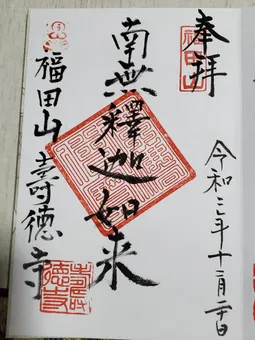 奉拝
福田山
令和三年十一月二十日
南無釋迦如来
福田山壽德寺
壽德寺